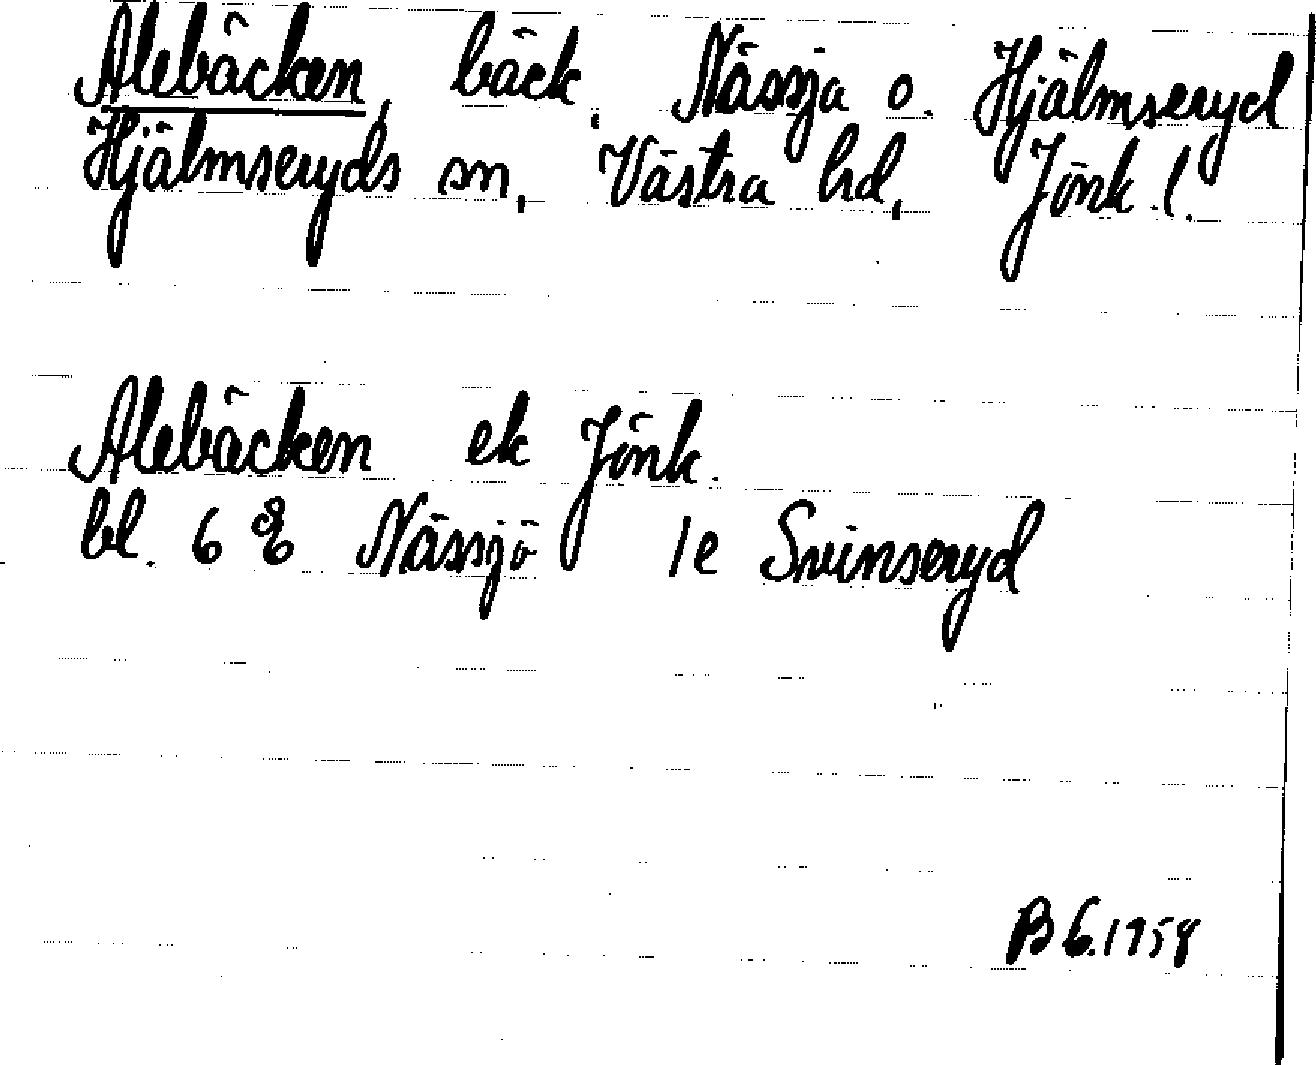 Alebäcken, bäck, Nässja o. Hjälmseryd
Hjälmseryds sn, Västra hd, Jönk. l.
Alebäcken ek Jönk.
bl. 6 E Nässjö 1e Svinseryd
B G. 1958